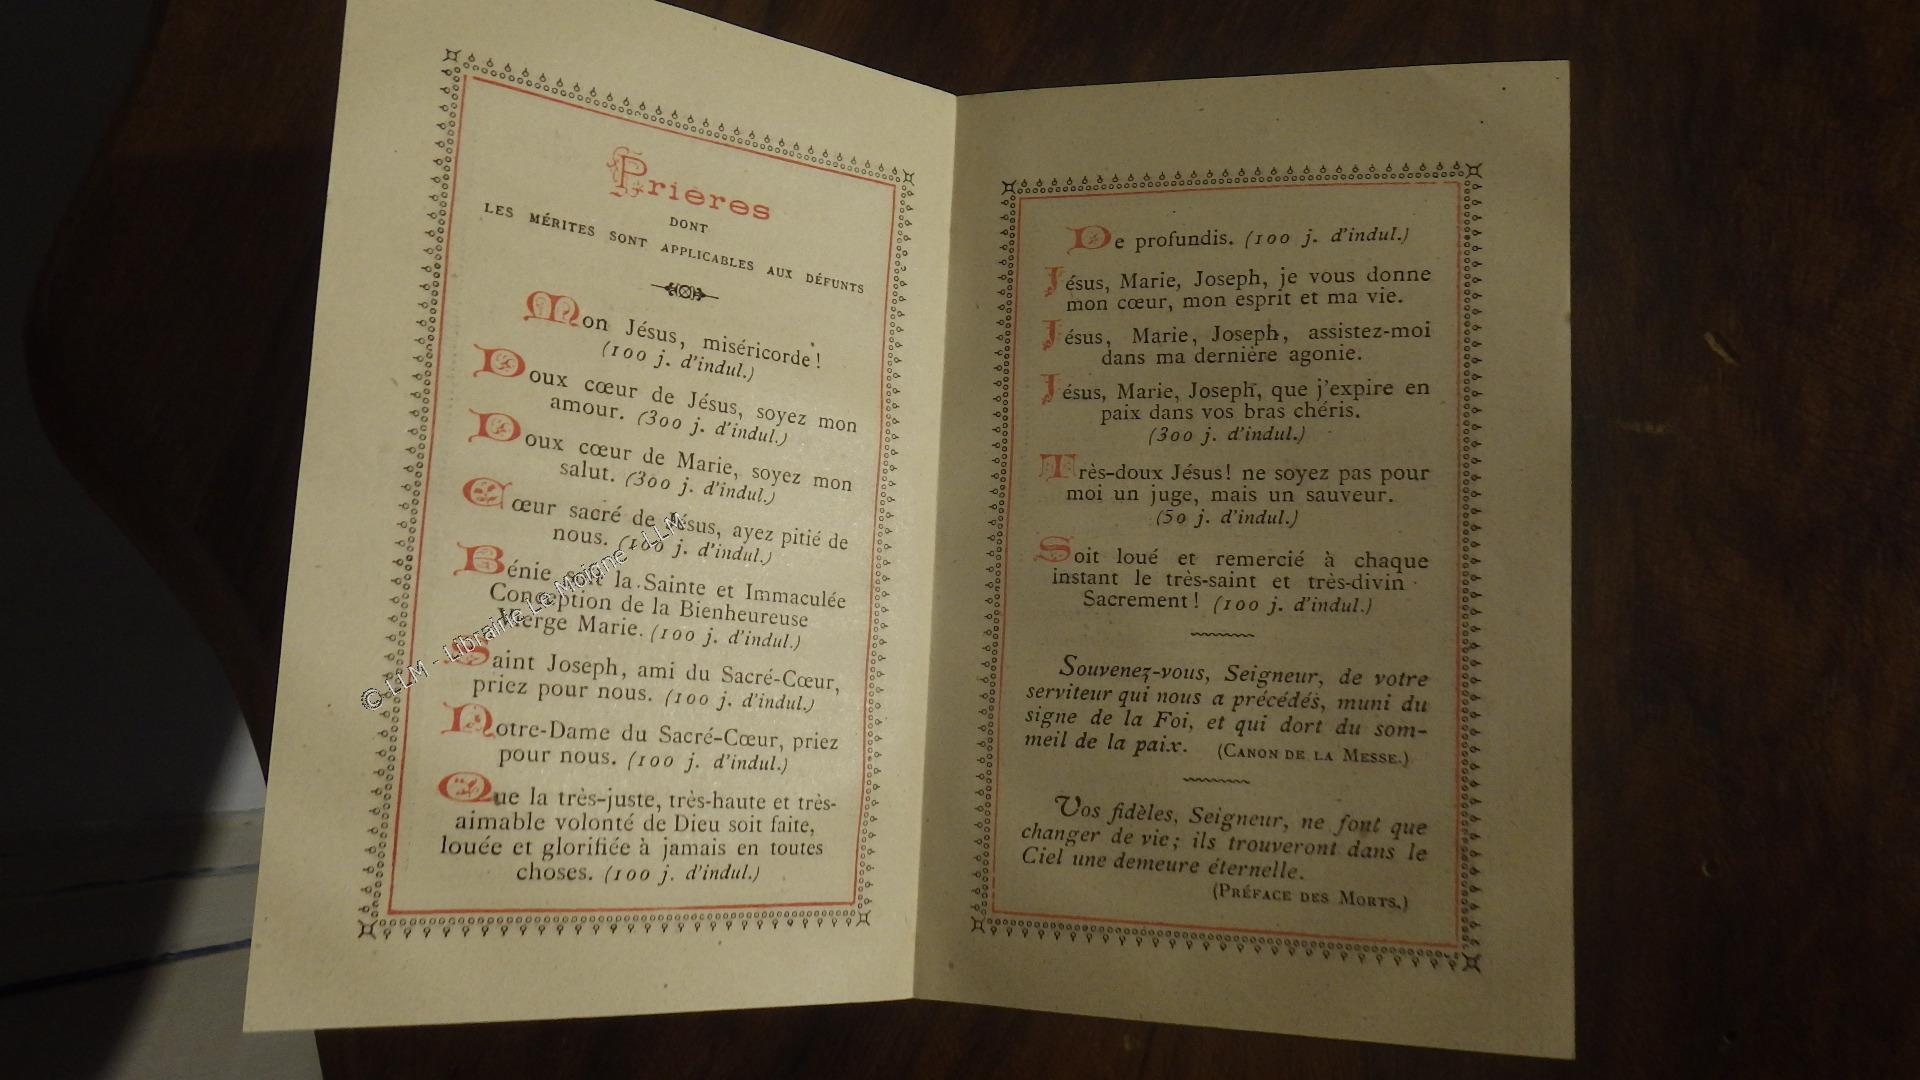 Prieres
DONT
LES MÉRITES SONT APPLICABLES AUX DÉFUNTS
Mon Jésus, miséricorde!
(100 j. d'indul.)
Doux cœur de Jésus, soyez mon
amour. (300 j. d'indul.)
Doux cœur de Marie, soyez mon
salut. (300 j. d'indul.)
Cœur sacré de Jésus, ayez pitié de
nous. (100 j. d'indul.)
Bénie soit la Sainte et Immaculée
Conception de la Bienheureuse
Vierge Marie. (100 j. d'indul.)
Saint Joseph, ami du Sacré-Cœur,
priez pour nous. (100 j. d'indul.)
Notre-Dame du Sacré-Cœur, priez
pour nous. (100 j. d'indul.)
Que la très-juste, très-haute et très-
aimable volonté de Dieu soit faite,
louée et glorifiée à jamais en toutes
choses. (100 j. d'indul.)
© LLM - Librairie Le Moigne - LLM
De profundis. (100 j. d'indul.)
Jésus, Marie, Joseph, je vous donne
mon cœur, mon esprit et ma vie.
Jésus, Marie, Joseph, assistez-moi
dans ma dernière agonie.
Jésus, Marie, Joseph, que j'expire en
paix dans vos bras chéris.
(300 j. d'indul.)
Très-doux Jésus! ne soyez pas pour
moi un juge, mais un sauveur.
(50 j. d'indul.)
Soit loué et remercié à chaque
instant le très-saint et très-divin
Sacrement! (100 j. d'indul.)
Souvenez-vous, Seigneur, de votre
serviteur qui nous a précédés, muni du
signe de la Foi, et qui dort du som-
meil de la paix. (CANON DE LA MESSE.)
Vos fidèles, Seigneur, ne font que
changer de vie; ils trouveront dans le
Ciel une demeure éternelle.
(PRÉFACE DES MORTS.)